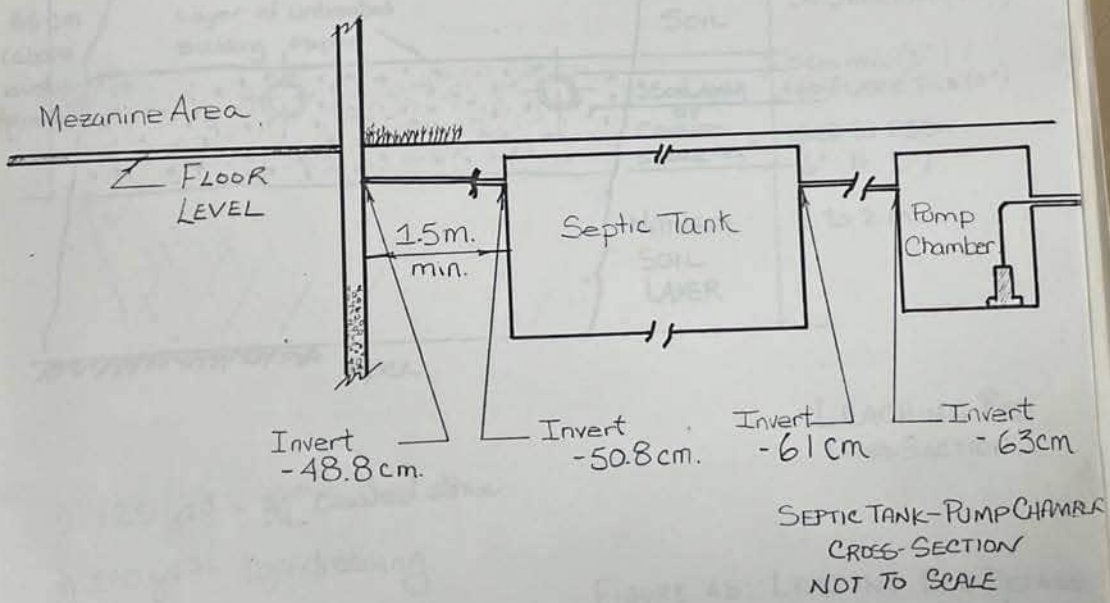 Mezanine Area.
FLOOR
LEVEL
1.5m.
min.
Septic Tank
Pump
Chamber
Invert
-48.8 cm.
Invert
-50.8 cm.
Invert
-61 cm
Invert
-63cm
SEPTIC TANK-PUMP CHAMBER
CROSS-SECTION
NOT TO SCALE
SOIL
SOIL
LAYER